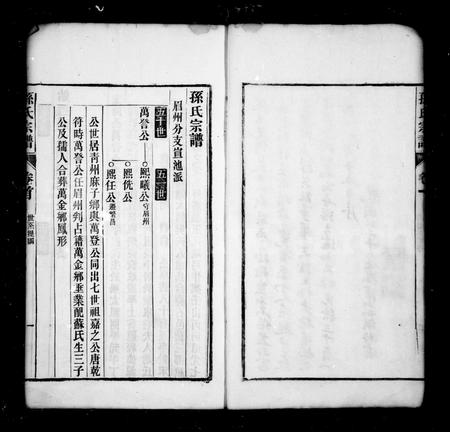 孫氏宗譜
眉州分支宣池派
五十世
五十一世
萬登公
熙曦公守眉州
熙侁公
熙任公遷繁昌
公世居青州麻子鄉與萬登公同出七世祖嘉之公唐乾
符時萬登公任眉州判占籍萬金鄉垂業配蘇氏生三子
公及孺人合葬萬金鄉鳳形
孫氏宗譜
卷首
一
孫氏宗譜